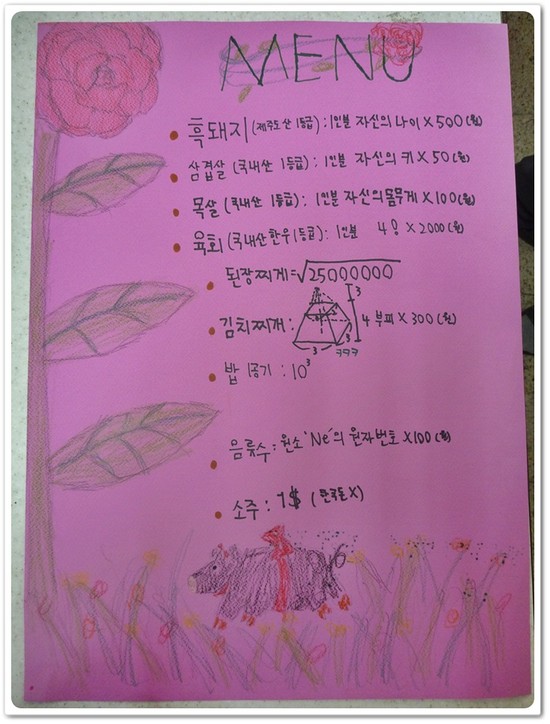 MENU
흑돼지 (제주도산 1등급) : 1인분 자신의 나이 X 500 (원)
삼겹살 (국내산 1등급) : 1인분 자신의 키 X 50 (원)
목살 (국내산 1등급) : 1인분 자신의 몸무게 X 100 (원)
육회 (국내산 한우 1등급) : 1인분 4! X 2000 (원)
된장찌게 = √25000000
김치찌개 : 3 3 3 ㅋㅋㅋ 부피 X 300 (원)
밥 1공기 : 10³
음료수 : 원소 'Ne'의 원자번호 X 100 (원)
소주 : 7$ (한국돈 X)